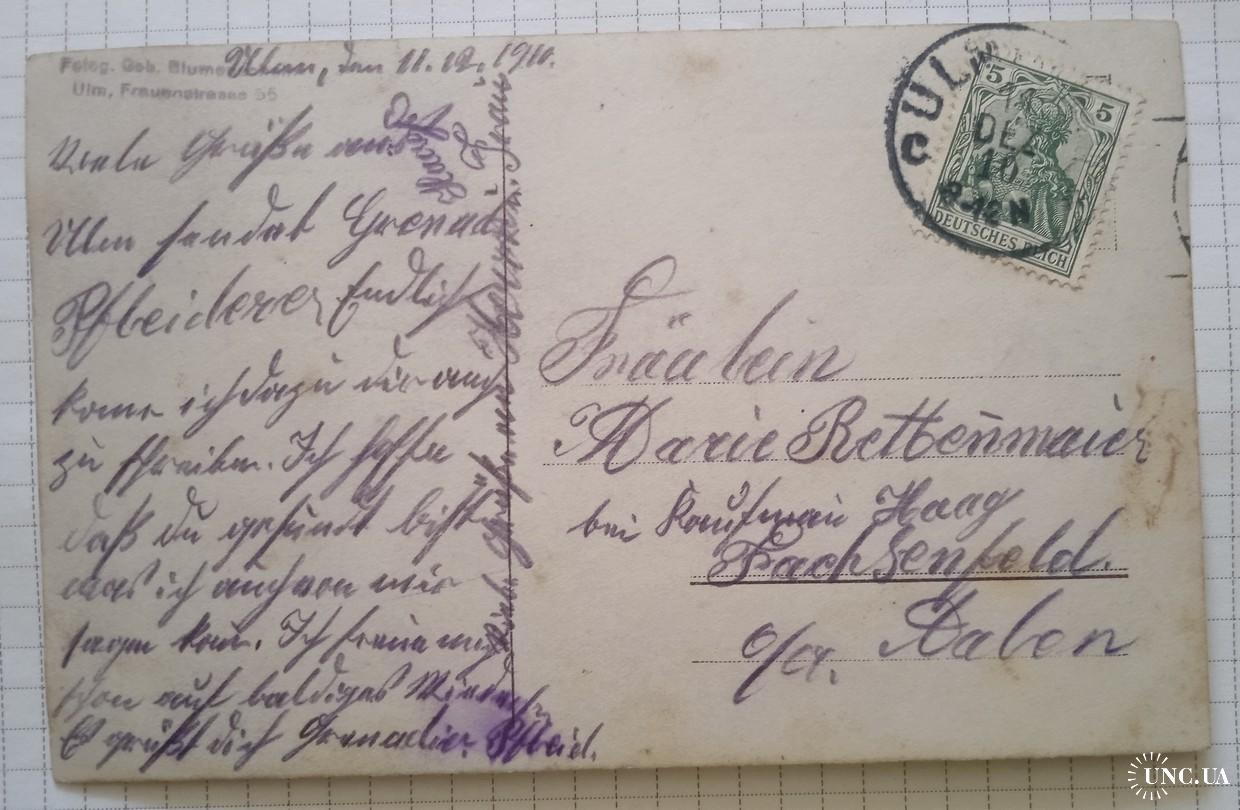 Fotog. Geb. Blume
Ulm, Frauenstrasse 35
Ulm, den 11.12.1910.
Viele Grüße aus
Ulm sendet Grenad
Pfleiderer Endlich
kome ich dazu dir auch
zu schreiben. Ich hoffe
daß du gesund bist
was ich auch von mir
sagen kan. Ich freue mich
schon auf baldiges Wiedersehn
Es grüßt dich Grenadier Pfleid.
Viele Grüße an Haag u. Frau
ULM
14
DEZ
10
8-12 N
5
5
DEUTSCHES REICH
Fräulein
Marie Rettenmaier
bei Kaufman Haag
Fachsenfeld.
O/A. Aalen
UNC.UA